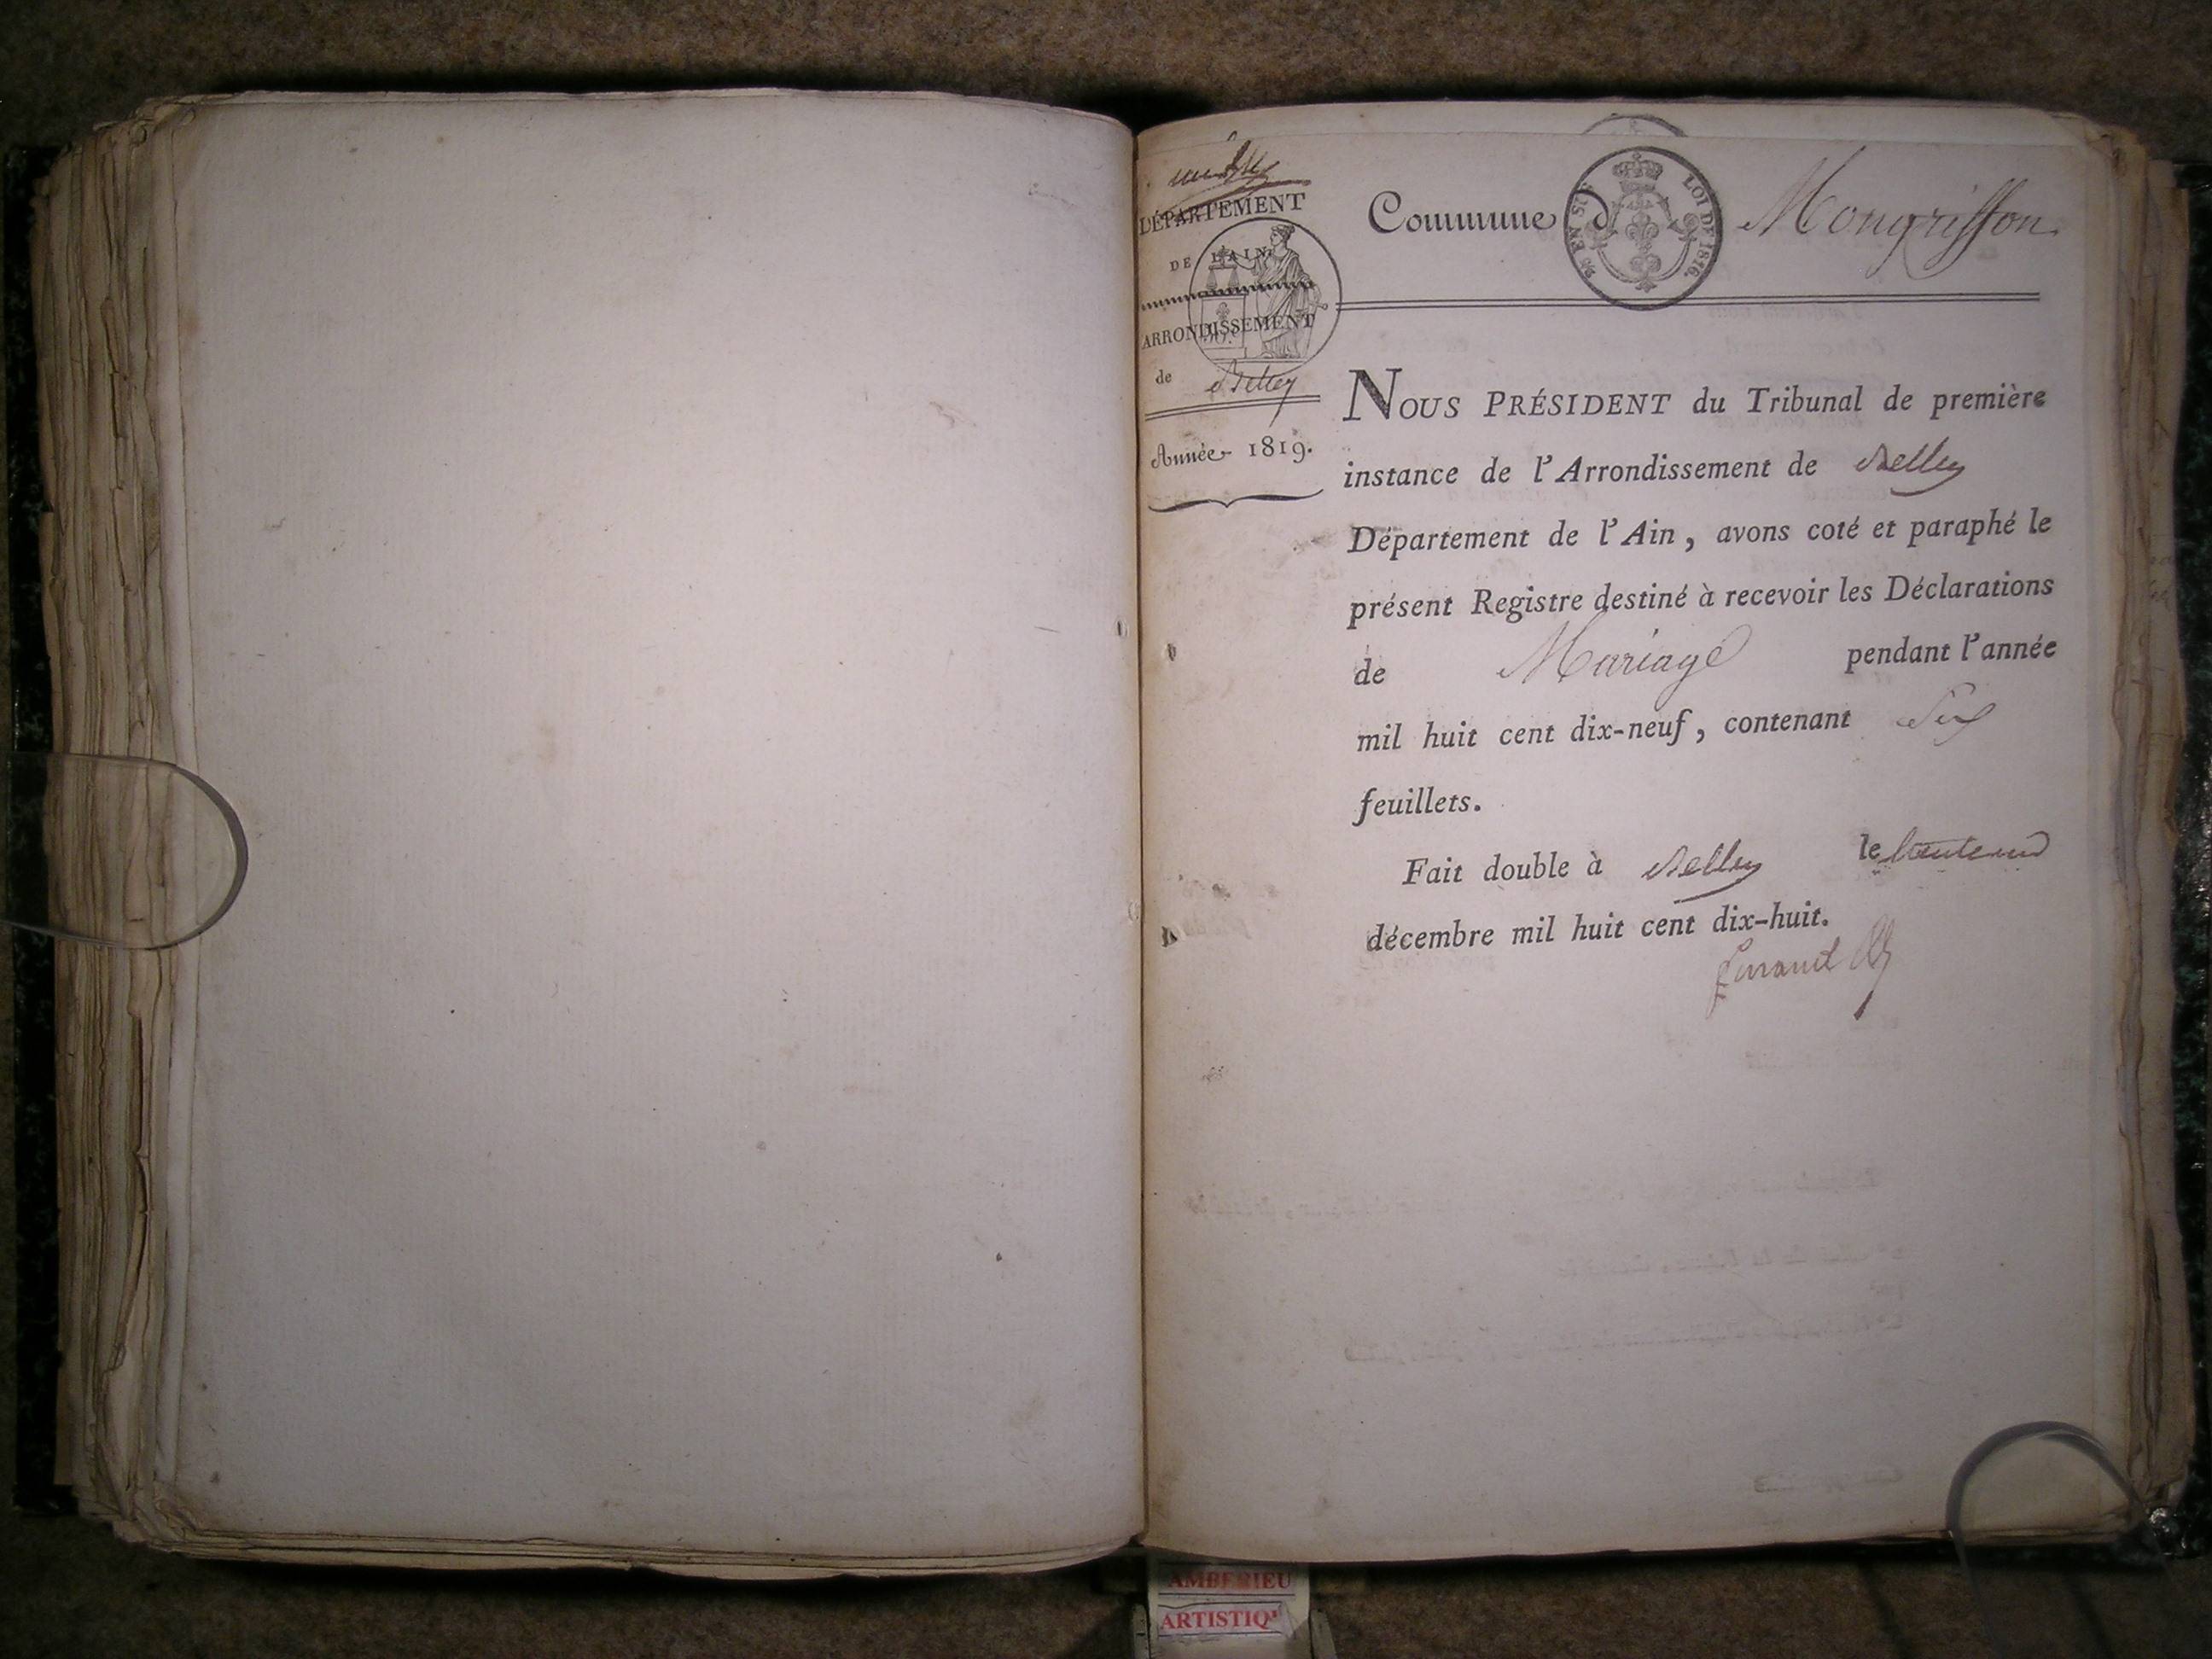 DÉPARTEMENT
DE L'AIN.
ARRONDISSEMENT
de Belley
Année 1819.
Commune d Mongriffon
LOI DE 1816.
EN SUS
NOUS PRÉSIDENT du Tribunal de première
instance de l'Arrondissement de Belley
Département de l'Ain, avons coté et paraphé le
présent Registre destiné à recevoir les Déclarations
de Mariage pendant l'année
mil huit cent dix-neuf, contenant Six
feuillets.
Fait double à Belley le
décembre mil huit cent dix-huit.
AMBERIEU
ARTISTIQ